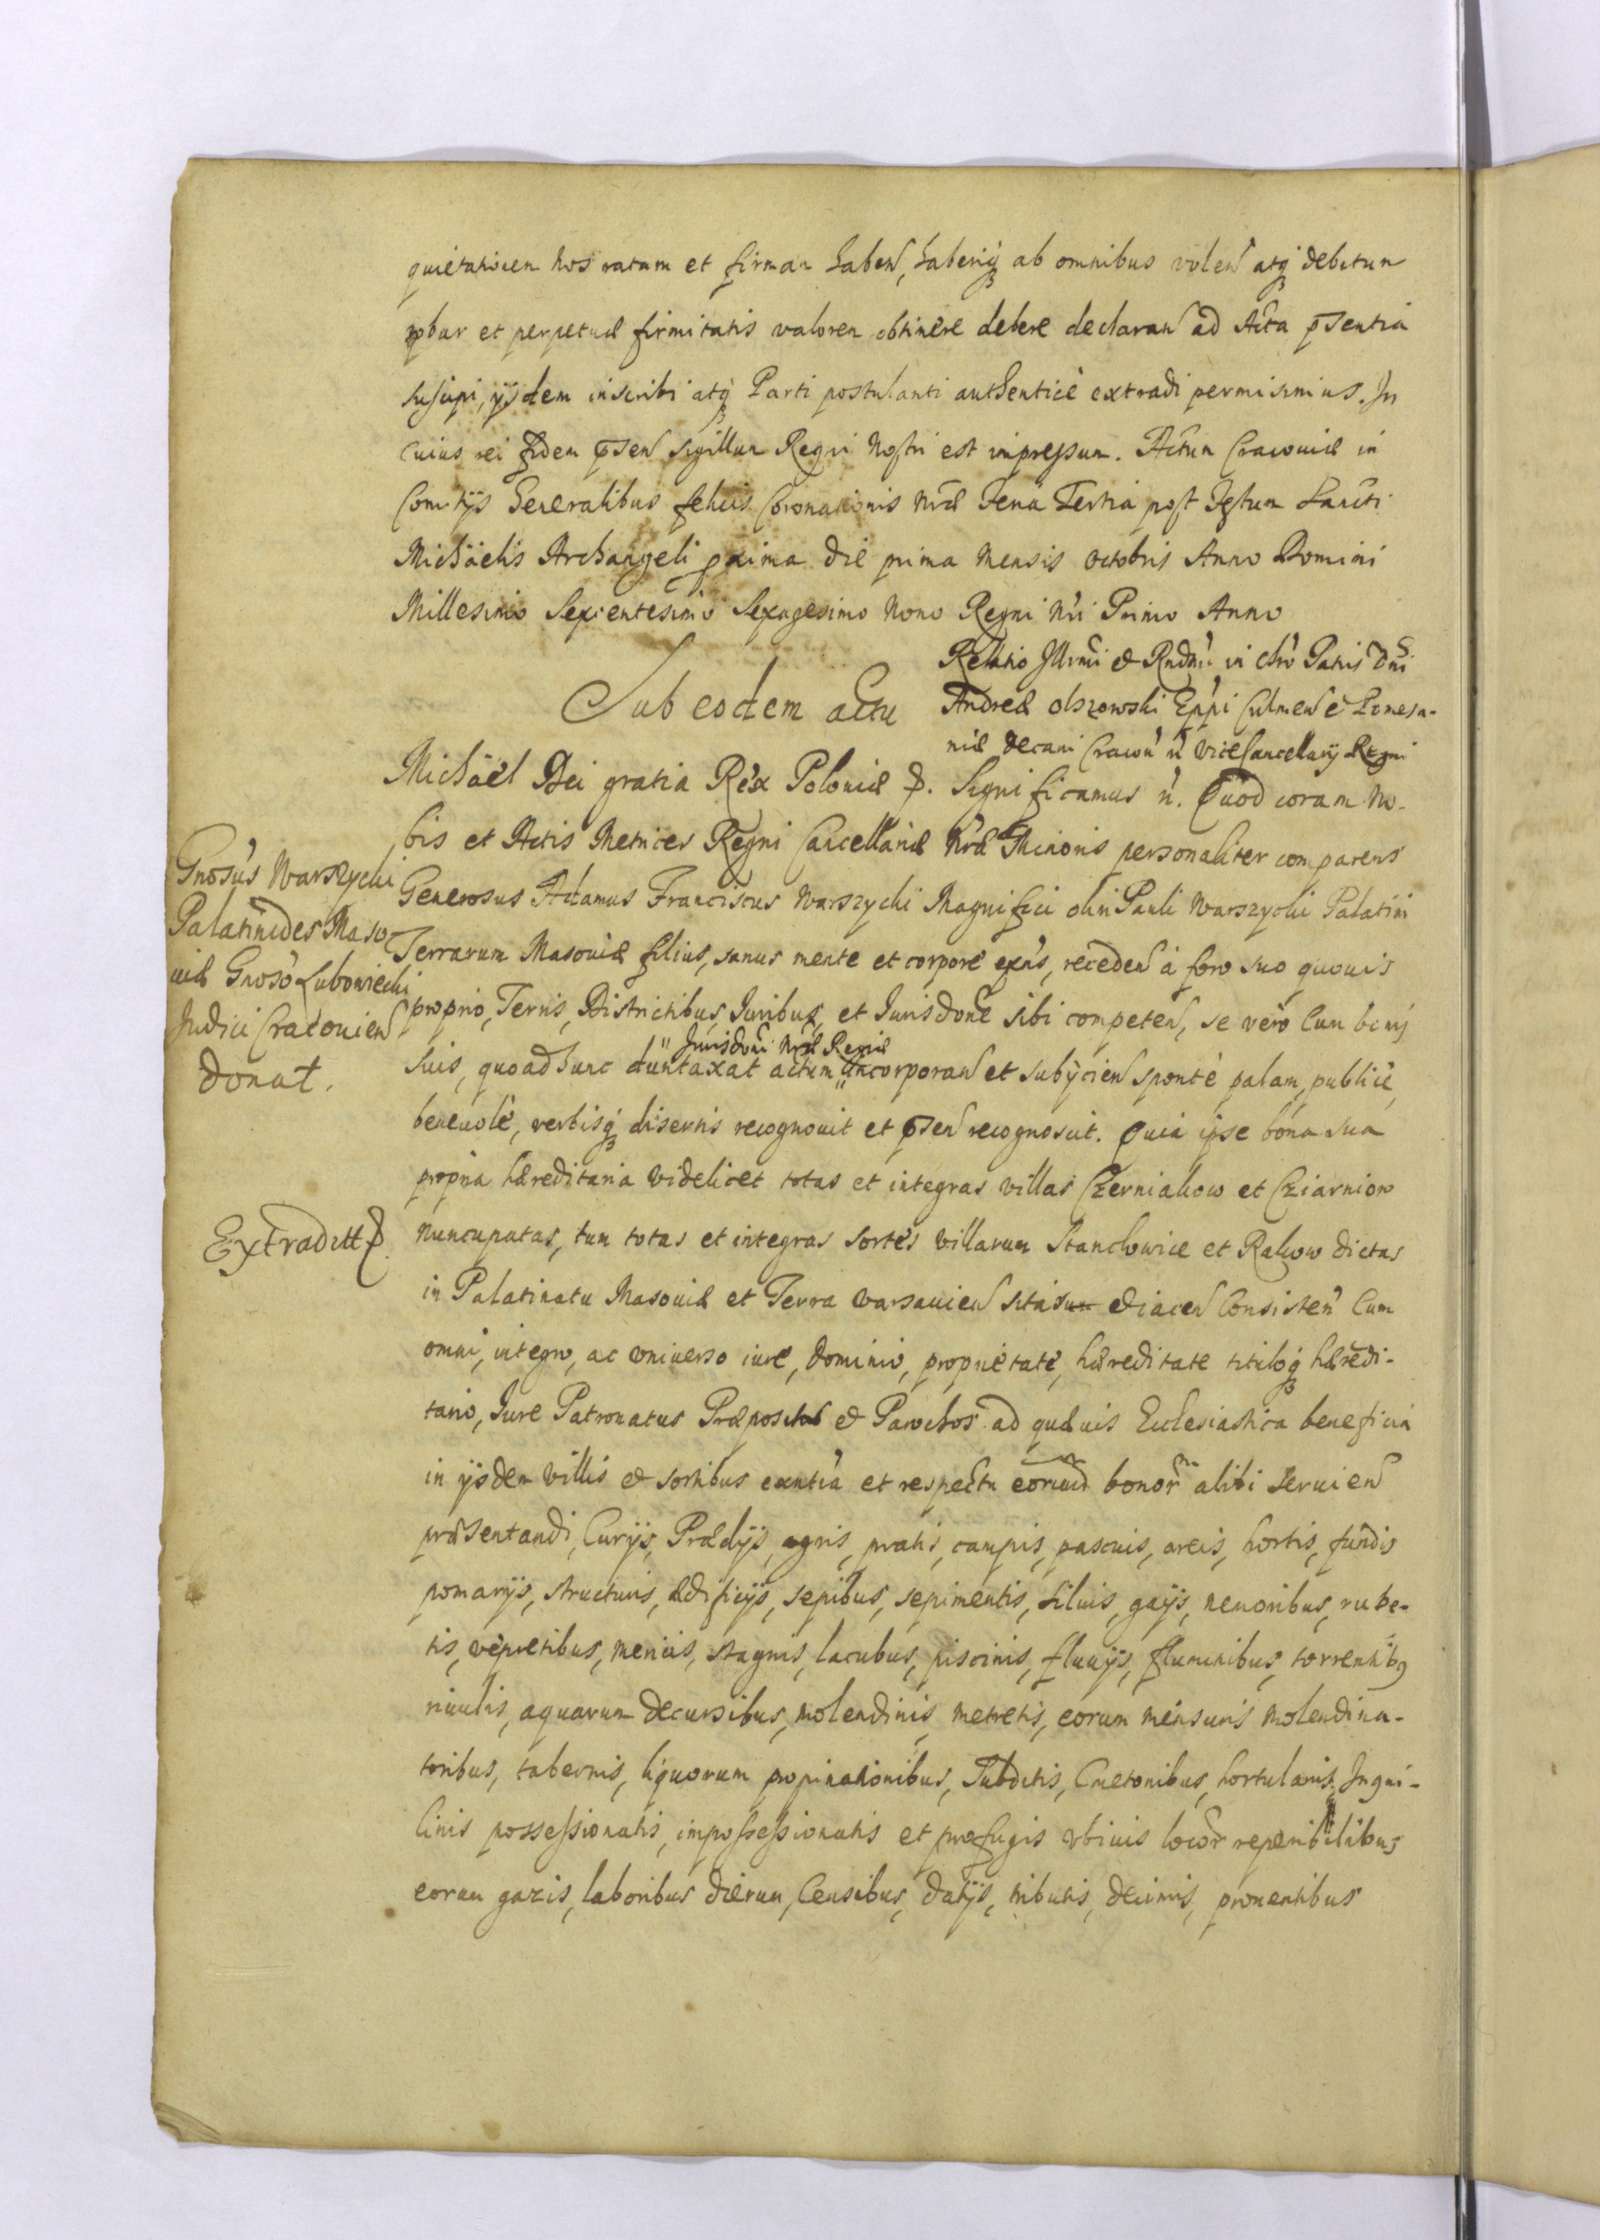 quietationem nos ratam et firmam haben, haberiq ab omnibus volen atq debitum
robur et perpetuæ firmitatis valorem obtinere debere declaran ad Acta psentia
suscipi, ijsdem inscribi atq Parti postulanti authenticè extradi permisimus. In
cuius rei fidem psen sigillum Regni Nostri est impressum. Actum Cracouiæ in
Comitijs Generalibus felicis Coronationis nræ Feria Tertia post Festum Sancti
Michäelis Archangeli proxima die prima Mensis octobris Anno Domini
Millesimo Sexcentesimo Sexagesimo Nono Regni nri Primo Anno
Relatio Illrmi & Rndmi in chro Patris Dni
Andreæ olszowski Eppi Culmen & Pomesa-
niæ Decani Cracou n ViceCancellarij Regni
Sub eodem actu
Michäel Dei gratia Rex Poloniæ &. Significamus n. Quod coram No-
bis et Actis Metrices Regni Cancellariæ nræ Minoris personaliter comparens
Generosus Adamus Franciscus Warszycki Magnifici olim Pauli Warszycki Palatini
Terrarum Masouiæ filius, sanus mente et corpore exns, receden à foro suo quouis
proprio, Terris, Districtibus, Iuribus, et Iurisdone sibi competen, se vero cum bonis
Iurisdoni nræ Regiæ
suis, quoad hunc duntaxat actum incorporan et subijcien sponte palam, publicè,
beneuolè, verbisq disertis recognouit et psen recognoscit. Quia ipse bona sua
propria hæreditaria videlicet totas et integras villas Czerniakow et Cziarniow
nuncupatas, tum totas et integras sortes villarum Stanclowice et Rakow dictas
in Palatinatu Masouiæ et Terra varsauien sitas & iacen Consisten Cum
omni, integro, ac vniuerso iure, dominio, proprietate, hæreditate titiloq hæredi-
tario, Iure Patronatus Præpositos & Parochos ad quæuis Ecclesiastica beneficia
in ijsdem villis & sortibus exntia et respectu eorund bonor alibi seruien
præsentandi, Curijs, Prædijs, agris, pratis, campis, pascuis, areis, hortis, fundis
pomarijs, structuris, ædificijs, sepibus, sepimentis, siluis, gaijs, nemoribus, rube-
tis, vepretibus, mericis, stagnis, lacubus, piscinis, fluuijs, fluminibus, torrentibs
riuulis, aquarum decursibus, molendinis, metretis, eorum mensuris molendina-
toribus, tabernis, liquorum propinationibus, Subditis, Cmetonibus, hortulanis, Inqui-
linis possessionatis, impossessionatis et profugis vbiuis locor reperibilibus
eorum gazis, laboribus dierum, Censibus, datijs, tributis, decimis, prouentibus
Gnosus Warszycki
Palatinides Maso
uiæ Gnoso Lubowiecki
Iudici Cracouien
donat.
Extraditt